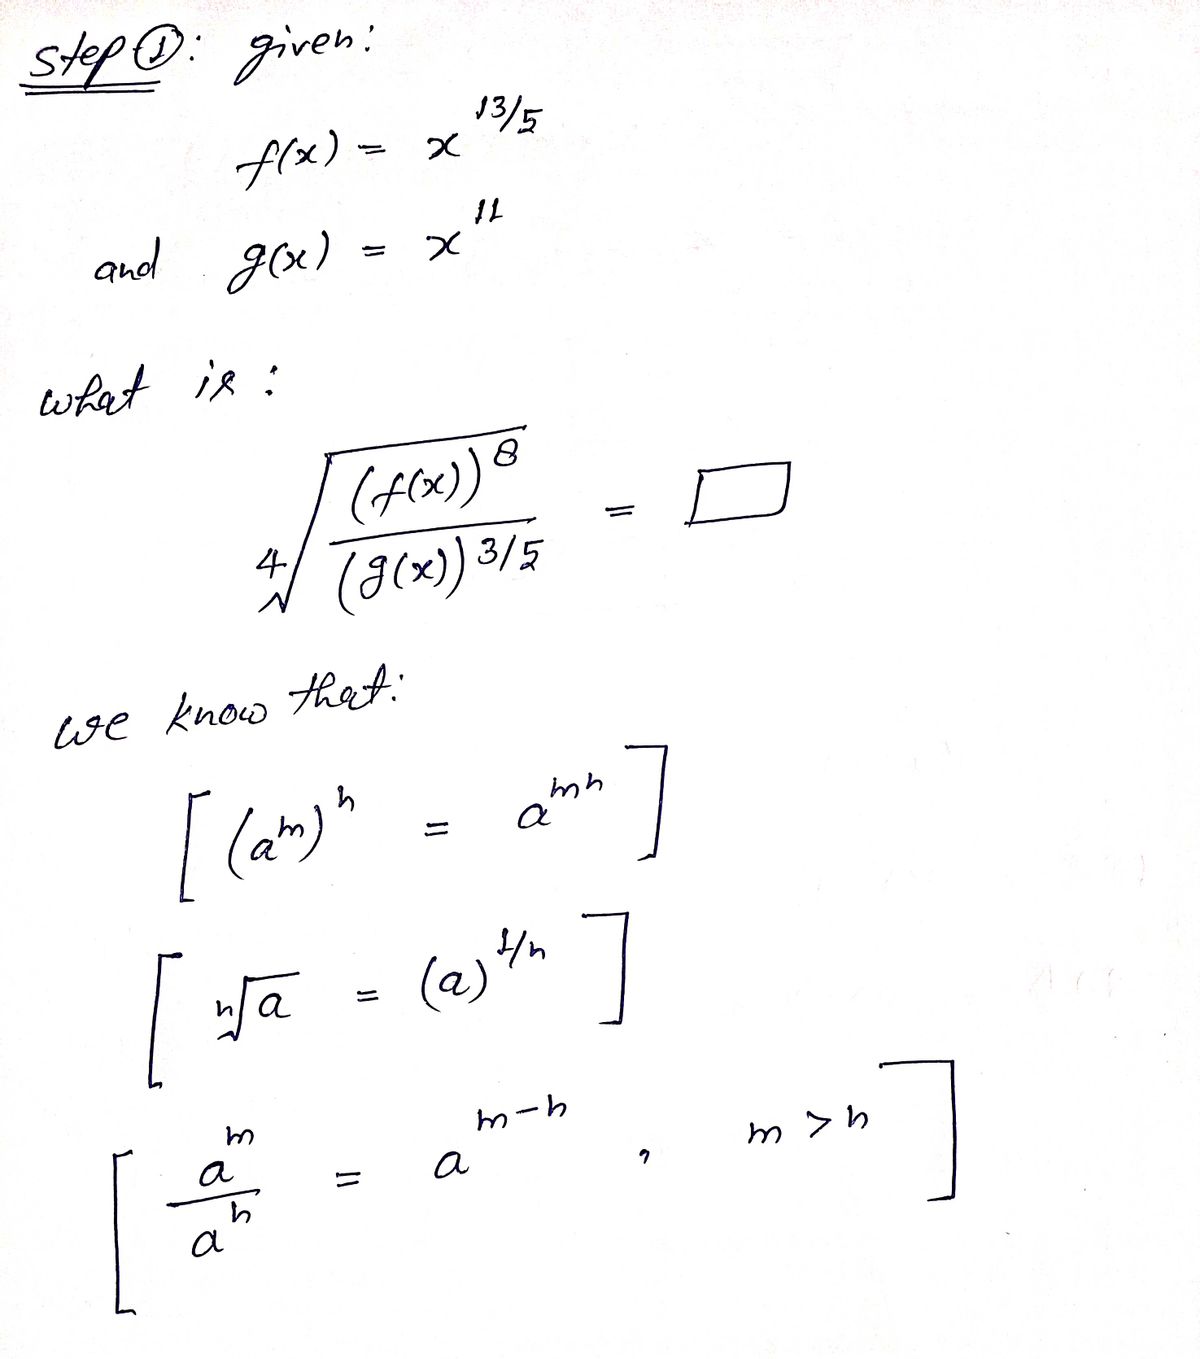 step ①: given:
f(x) = x^{13/5}
and g(x) = x^{11}
what is:
\sqrt[4]{\frac{(f(x))^8}{(g(x))^{3/5}}} = □
we know that:
[(a^m)^n = a^{mn}]
[\sqrt[n]{a} = (a)^{1/n}]
[\frac{a^m}{a^n} = a^{m-n}, m > n]